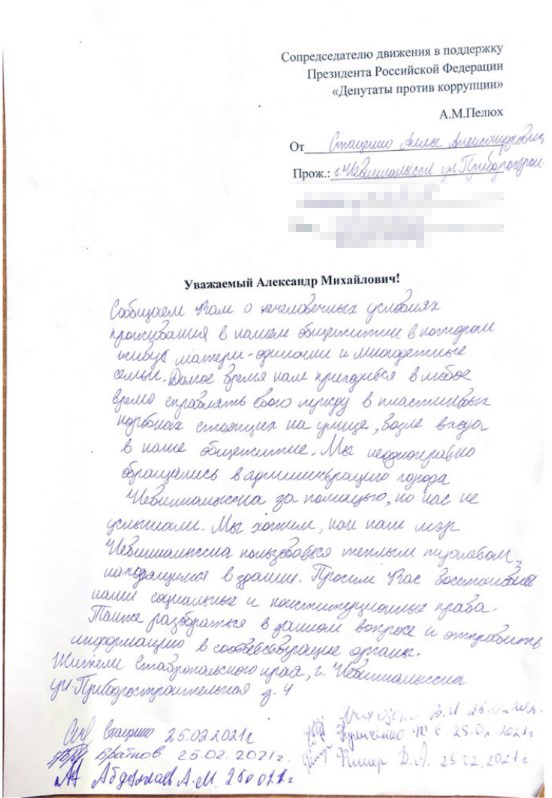 Сопредседателю движения в поддержку
Президента Российской Федерации
«Депутаты против коррупции»
А.М.Пелюх
От
Прож.: г. Невинномысск ул. Приборостроит
Уважаемый Александр Михайлович!
Сообщаем Вам о нечеловечных условиях
проживания в нашем общежитии в котором
живут матери-одиночки и многодетные
семьи. Долгое время нам приходится в любое
время справлять свою нужду в пластиковых
стоящих на улице, возле входа
в наше общежитие. Мы неоднократно
обращались в администрацию города
Невинномысска за помощью, но нас не
услышали. Мы хотим, как наш мэр
Невинномысска пользоваться теплым туалетом,
находящимся в здании. Просим Вас восстановить
наши социальные и конституционные права.
Также разобраться в данном вопросе и отправить
информацию в соответствующие органы.
Жители Ставропольского края, г. Невинномысска
ул. Приборостроительная д. 4
25.02.2021г
25.02.2021г.
А.М.
25.02.2021г.
25.02.2021г.